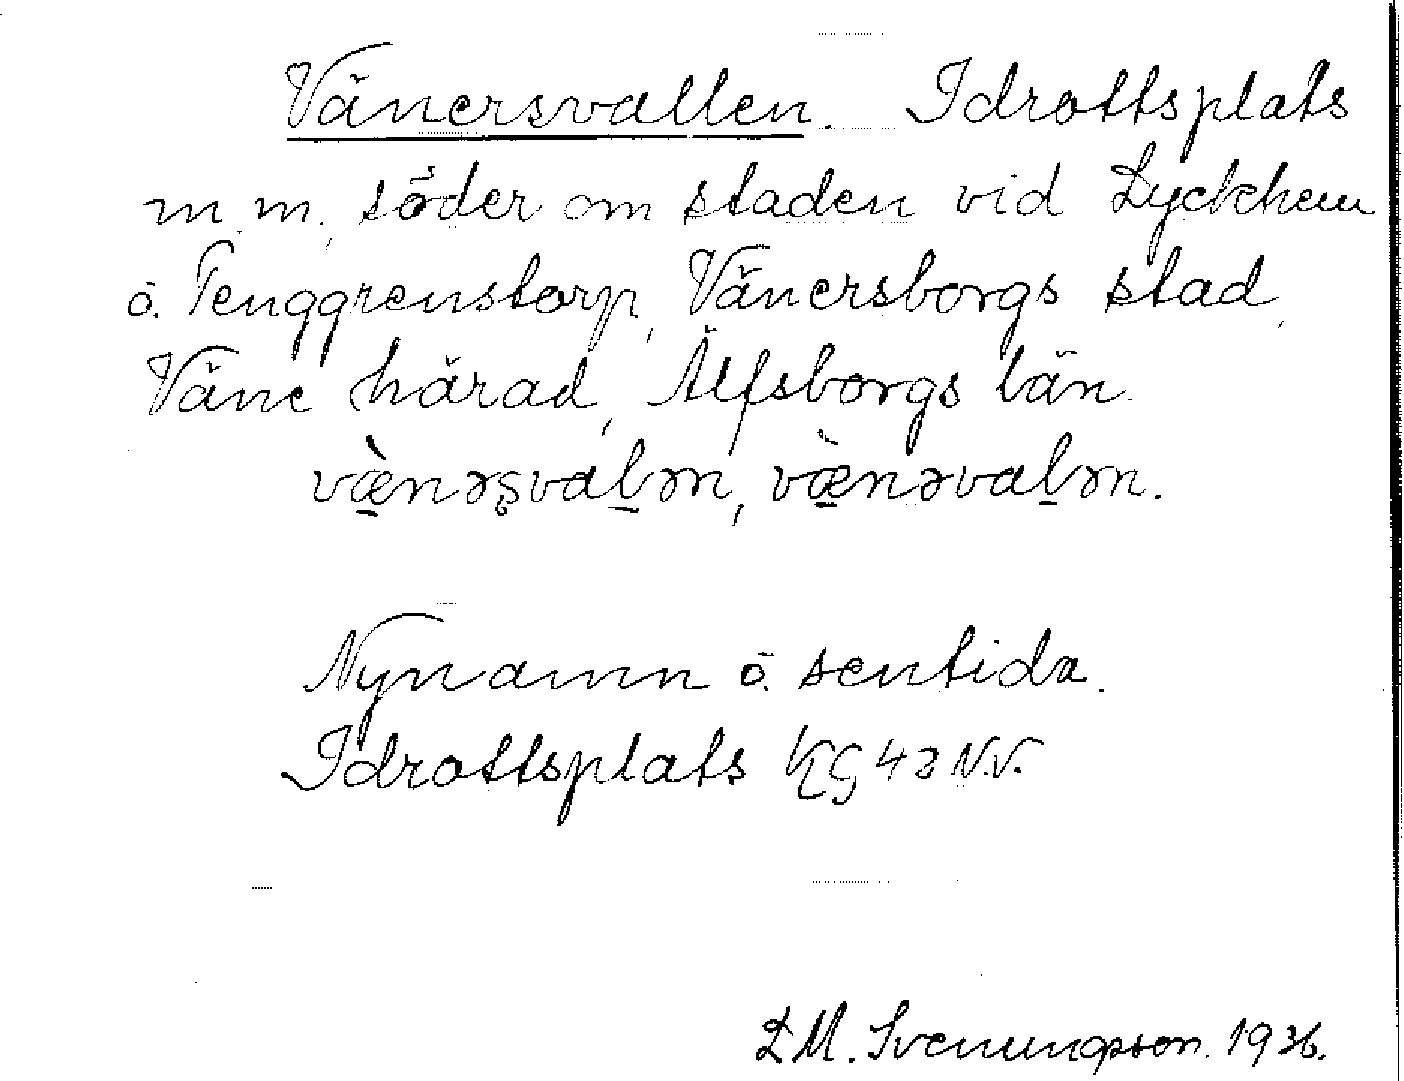 Vänersvallen. Idrottsplats
m. m., söder om staden vid Lyckhem
o. Tenggrenstorp, Vänersborgs stad,
Väne härad, Älfsborgs län.
væ̀nəʂvaḻən, væ̀nəvaḻən.
Nynamn o. sentida.
Idrottsplats KG 43 N.V.
L M. Svenungsson. 1936.